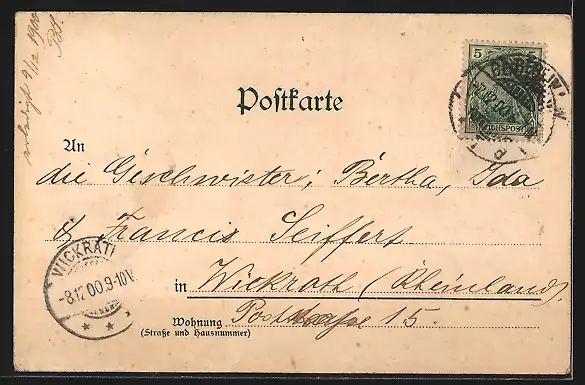 erledigt 9/12 1900
BS.
5 5
REICHSPOST
7.12.00
Postkarte
An
die Geschwister; Bertha, Ida
& Francis Seiffert
WICKRATH
8.12.00.9-10V
in Wickrath (Rheinland)
Wohnung Poststrasse 15.
(Straße und Hausnummer)